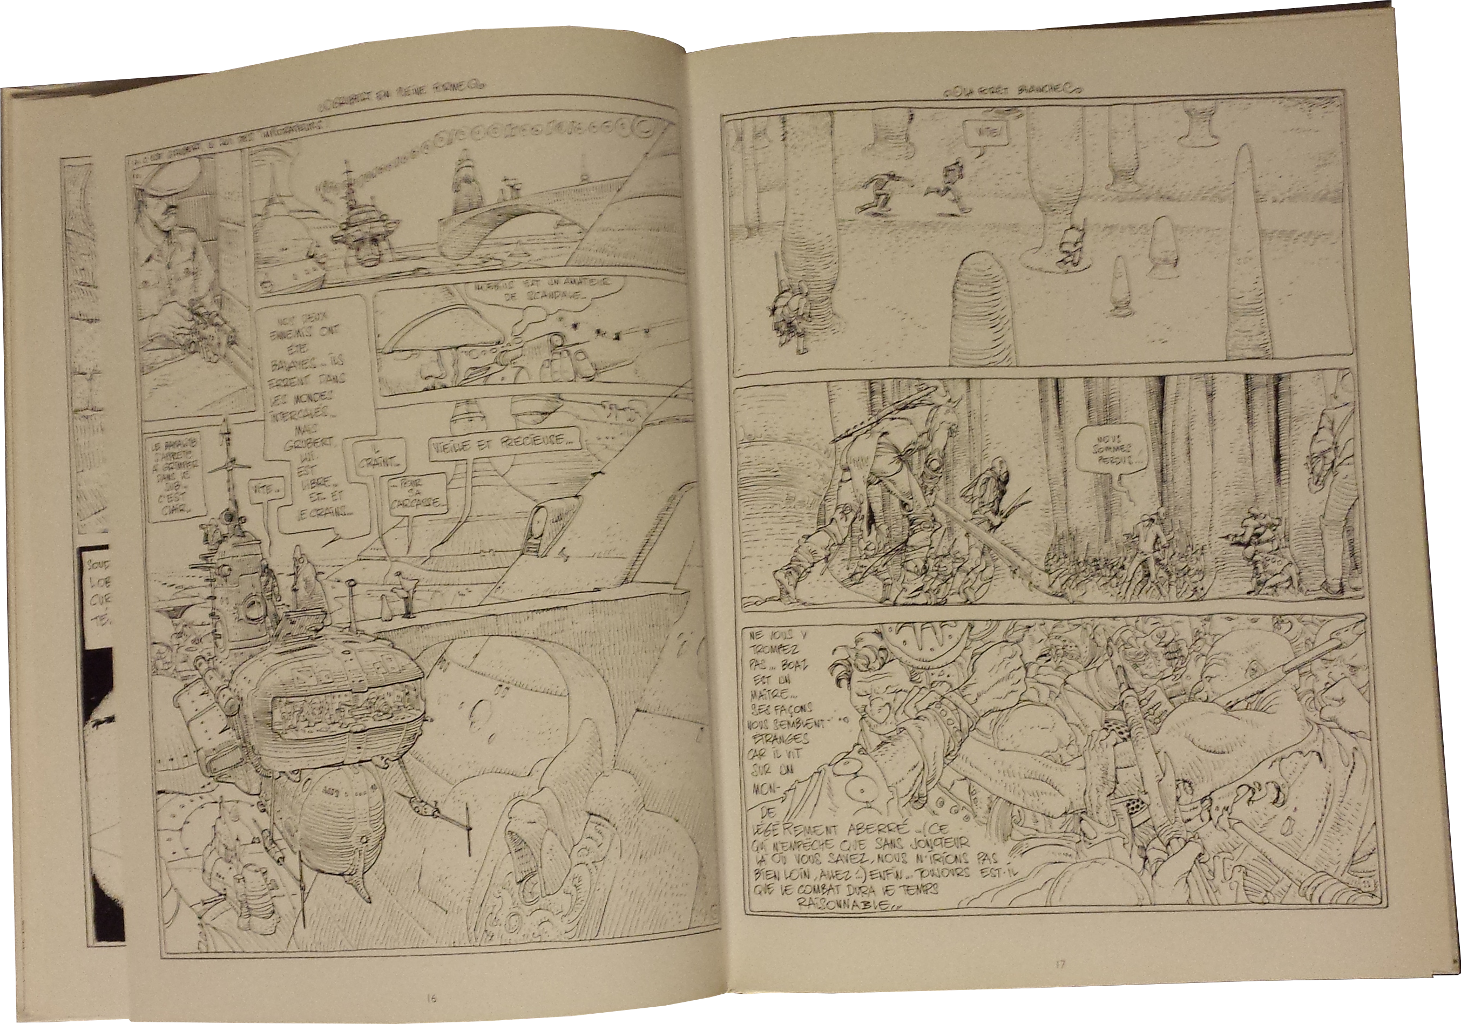 LA FORET BLANCHE
SCANDALE...
EST UN AMATEUR
DE SCANDALE...
NOS DEUX
ENNEMIS ONT
ETE
BALAYES... ILS
ERRENT DANS
LES MONDES
INTERCALES...
MAIS
GRUBERT
LUI
EST
LIBRE...
ET
JE CRAINS...
C'EST
CLAIR...
VITE...
IL
CRAINT...
...POUR
SA
CARCASSE...
VIEILLE ET PRECIEUSE...
SOUD
16
VITE!
NOUS
SOMMES
PERDUS...
NE VOUS Y
TROMPEZ
PAS... BOAZ
EST UN
MAÎTRE...
SES FAÇONS
VOUS SEMBLENT
ETRANGES
CAR IL VIT
SUR UN
MON-
DE
LÉGÈREMENT ABERRÉ... (CE
QUI N'EMPÊCHE QUE SANS JONGLEUR
LÀ OÙ VOUS SAVEZ, NOUS N'IRIONS PAS
BIEN LOIN, ALLEZ!) ENFIN... TOUJOURS EST-IL
QUE LE COMBAT DURA LE TEMPS
RAISONNABLE...
17